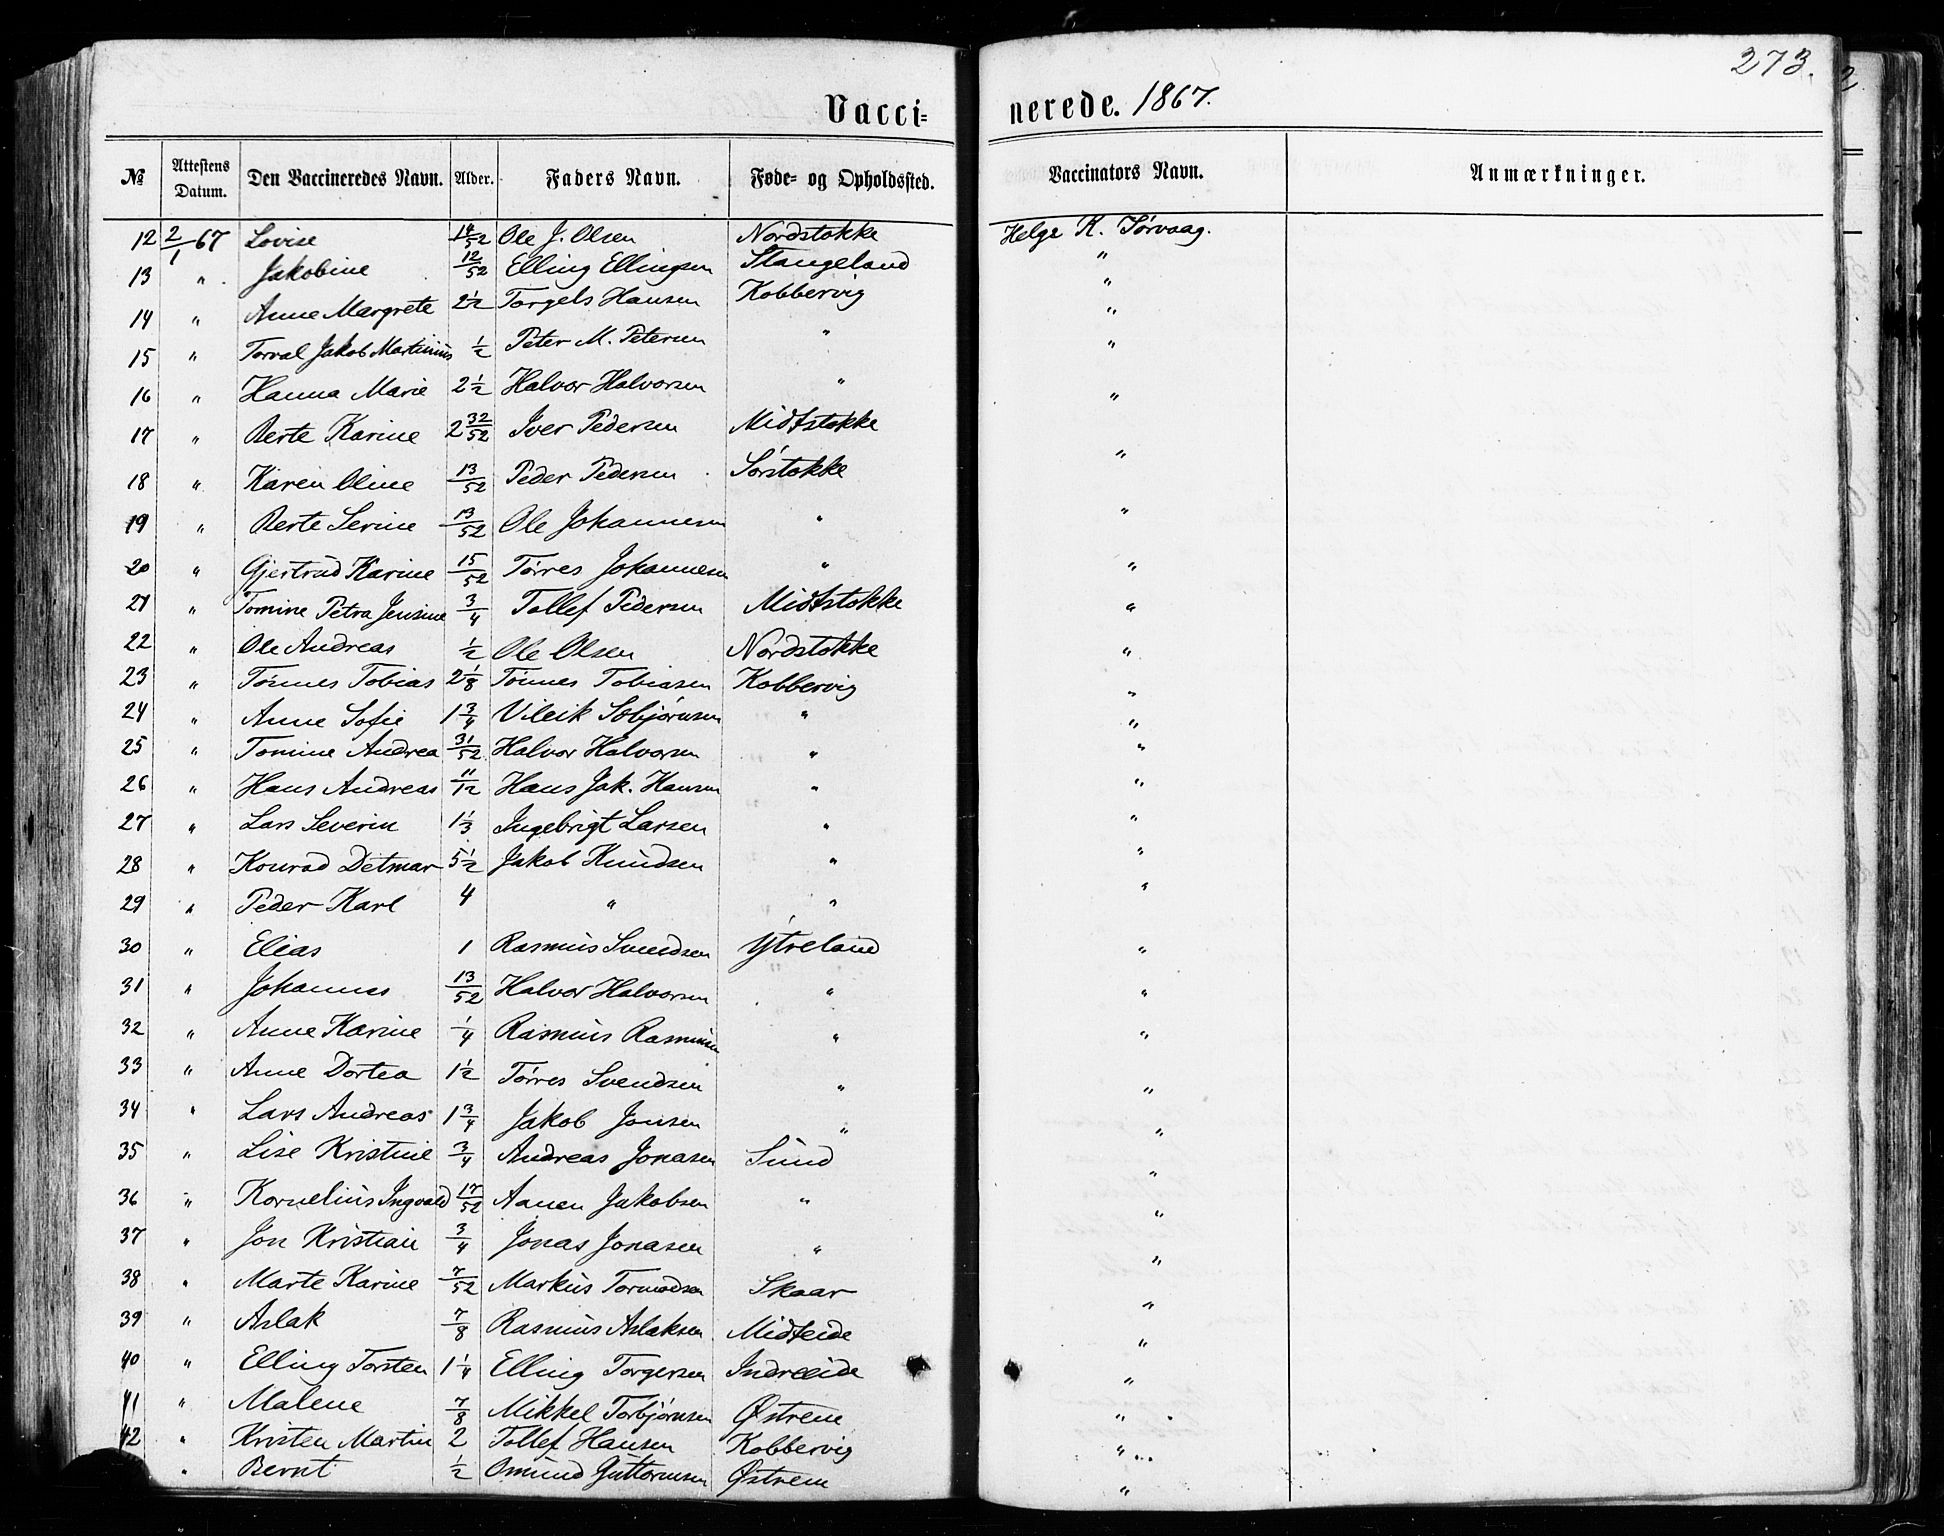 273.
Vacci= nerede. 1867.
№ Attestens Datum. Den Vaccineredes Navn. Alder. Faders Navn. Føde- og Opholdssted. Vaccinators Navn. Anmærkninger.
12 2/1 67 Lovise 14/52 Ole J. Olsen Nordstokke Helge K. Sørvaag.
13 " Jakobine 12/52 Elling Ellingsen Stangeland "
14 " Anne Margrete 2 1/2 Torgels Hansen Kobbervig "
15 " Torval Jakob Martinius 1/2 Peter M. Petersen " "
16 " Hanna Marie 2 1/2 Halvor Halvorsen " "
17 " Berte Karine 2 32/52 Iver Pedersen Midtstokke "
18 " Karen Oline 13/52 Peder Pedersen Sørstokke "
19 " Berte Serine 13/52 Ole Johannesen " "
20 " Gjertrud Karine 15/52 Tørres Johannesen " "
21 " Tomine Petra Jensine 3/4 Tollef Pedersen Midtstokke "
22 " Ole Andreas 1/2 Ole Olsen Nordstokke "
23 " Tønnes Tobias 2 1/8 Tønnes Tobiasen Kobbervig "
24 " Anne Sofie 1 3/4 Vileik Sebjørnsen " "
25 " Tomine Andrea 31/52 Halvor Halvorsen " "
26 " Hans Andreas 11/12 Hans Jak. Hansen " "
27 " Lars Severin 1 1/3 Ingebrigt Larsen " "
28 " Konrad Detmar 5 1/2 Jakob Knudsen " "
29 " Peder Karl 4 " " "
30 " Elias 1 Rasmus Svendsen Ytreland "
31 " Johannes 13/52 Halvor Halvorsen " "
32 " Anne Karine 1/4 Rasmus Rasmusen " "
33 " Anne Dortea 1 1/2 Tørres Svendsen " "
34 " Lars Andreas 1 3/4 Jakob Jonsen " "
35 " Lise Kristine 3/4 Andreas Jonasen Sund "
36 " Kornelius Ingvald 17/52 Aanen Jakobsen " "
37 " Jon Kristian 3/4 Jonas Jonasen " "
38 " Marte Karine 7/52 Markus Tormodsen Skaar "
39 " Aslak 7/8 Rasmus Aslaksen Midteide "
40 " Elling Torsten 1 1/4 Elling Torgersen Indreeide "
41 " Malene 7/8 Mikkel Torbjørnsen Østrem "
42 " Kristen Martin 2 Tollef Hansen Kobbervig "
" Bernt 1/2 Osmund Guttormsen Østrem "